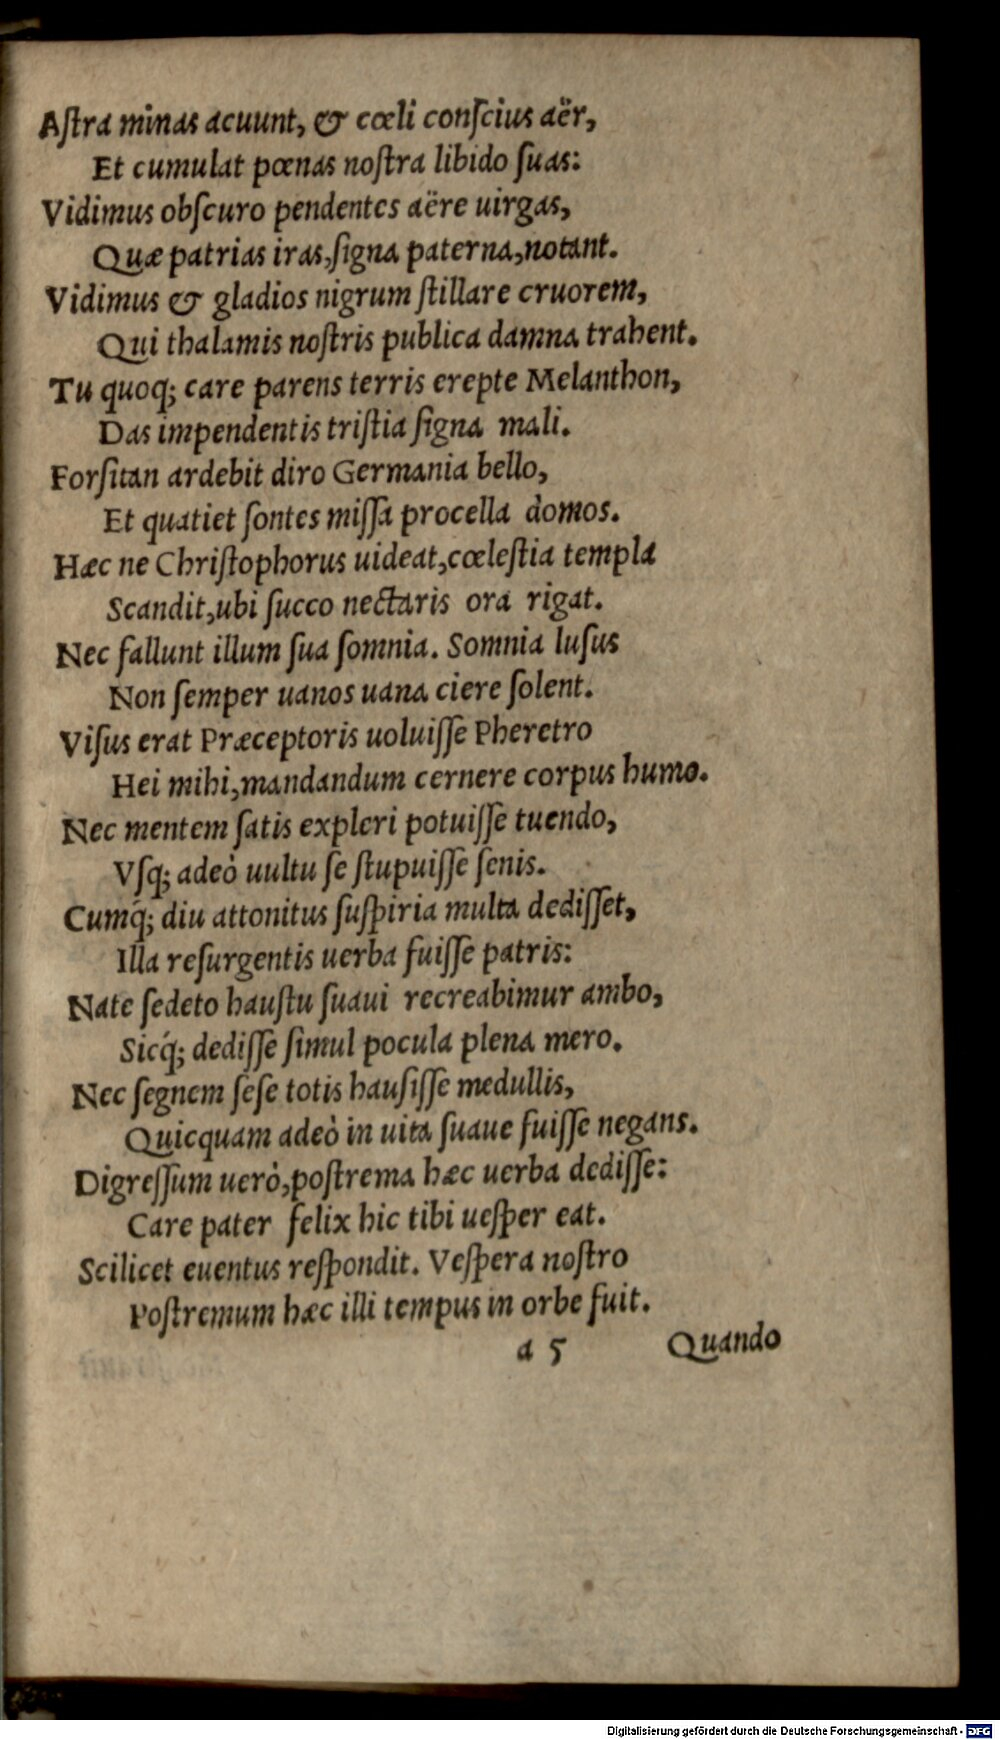 Aſtra minas acuunt, & cœli conſcius aër,
Et cumulat pœnas noſtra libido ſuas:
Vidimus obſcuro pendentes aëre uirgas,
Quæ patrias iras, ſigna paterna, notant.
Vidimus & gladios nigrum ſtillare cruorem,
Qui thalamis noſtris publica damna trahent.
Tu quoq; care parens terris erepte Melanthon,
Das impendentis triſtia ſigna mali.
Forſitan ardebit diro Germania bello,
Et quatiet ſontes miſſa procella domos.
Hæc ne Chriſtophorus uideat, cœleſtia templa
Scandit, ubi ſucco nectaris ora rigat.
Nec fallunt illum ſua ſomnia. Somnia luſus
Non ſemper uanos uana ciere ſolent.
Viſus erat Præceptoris uoluiſſe Pheretro
Hei mihi, mandandum cernere corpus humo.
Nec mentem ſatis expleri potuiſſe tuendo,
Vſq; adeò uultu ſe ſtupuiſſe ſenis.
Cumq́; diu attonitus ſuſpiria multa dediſſet,
Illa reſurgentis uerba fuiſſe patris:
Nate ſedeto hauſtu ſuaui recreabimur ambo,
Sicq́; dediſſe ſimul pocula plena mero.
Nec ſegnem ſeſe totis hauſiſſe medullis,
Quicquam adeò in uita ſuaue fuiſſe negans.
Digreſſum uerò, poſtrema hæc uerba dediſſe:
Care pater felix hic tibi ueſper eat.
Scilicet euentus reſpondit. Veſpera noſtro
Poſtremum hæc illi tempus in orbe fuit.
a 5 Quando
Digitalisierung gefördert durch die Deutsche Forschungsgemeinschaft - DFG